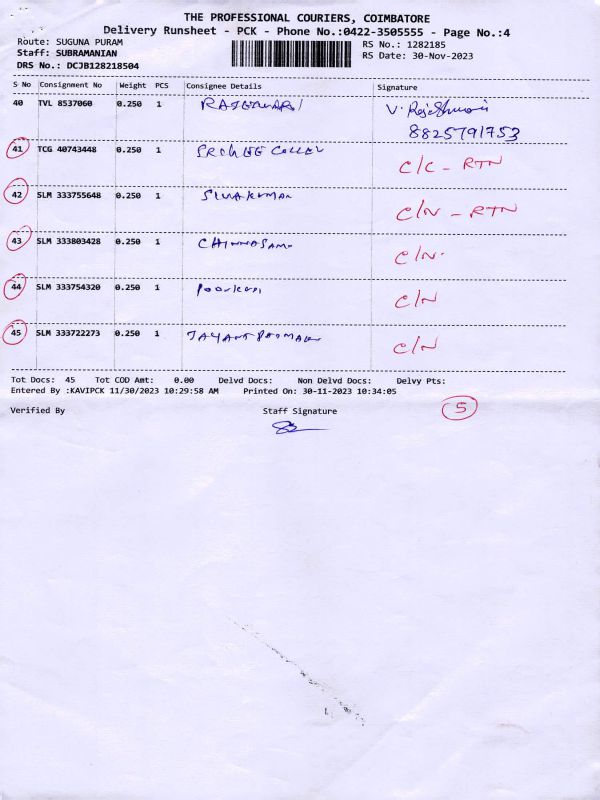 THE PROFESSIONAL COURIERS, COIMBATORE
Delivery Runsheet - PCK - Phone No.:0422-3505555 - Page No.:4
Route: SUGUNA PURAM RS No.: 1282185
Staff: SUBRAMANIAN RS Date: 30-Nov-2023
DRS No.: DCJB128218504
S No Consignment No Weight PCS Consignee Details Signature
40 TVL 8537060 0.250 1 RAJESWARI V. Rajeshwari
8825791753
41 TCG 40743448 0.250 1 C/C - RTN
42 SLM 333755648 0.250 1 SIVAKUMAR C/N - RTN
43 SLM 333803428 0.250 1 CHINNASAMI C/N.
44 SLM 333754320 0.250 1 C/N
45 SLM 333722273 0.250 1 C/N
Tot Docs: 45 Tot COD Amt: 0.00 Delvd Docs: Non Delvd Docs: Delvy Pts:
Entered By :KAVIPCK 11/30/2023 10:29:58 AM Printed On: 30-11-2023 10:34:05
Verified By Staff Signature 5